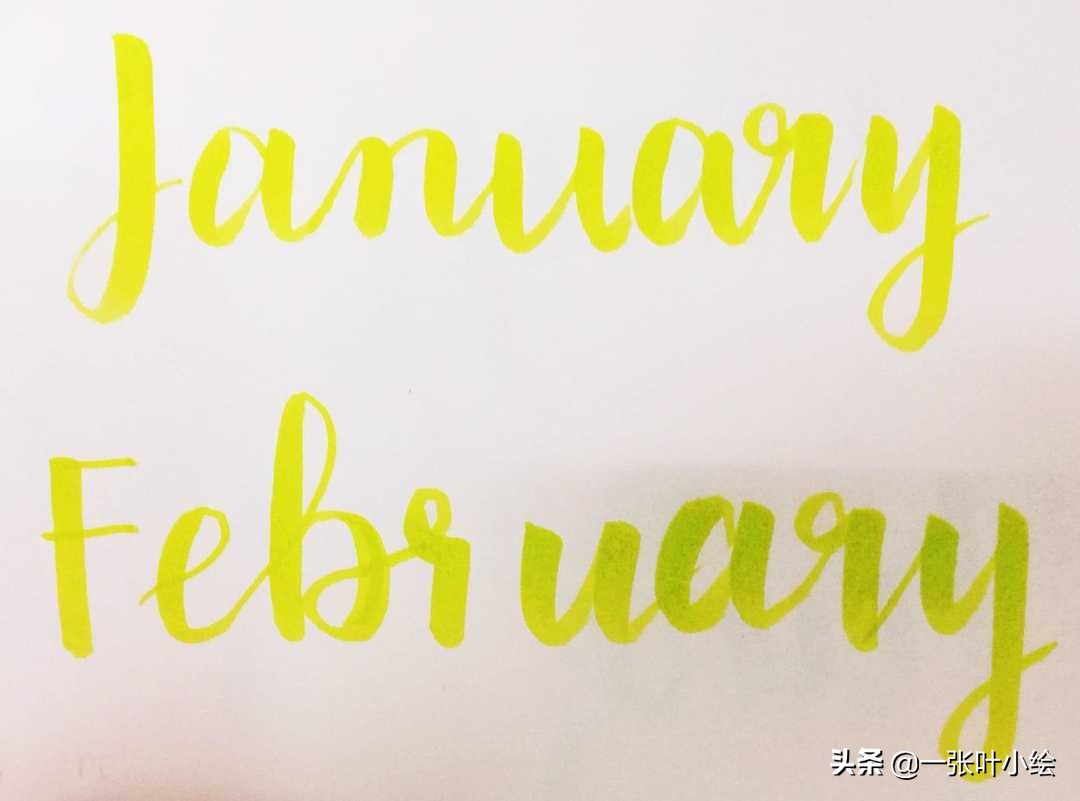 January
February
头条 @一张叶小绘